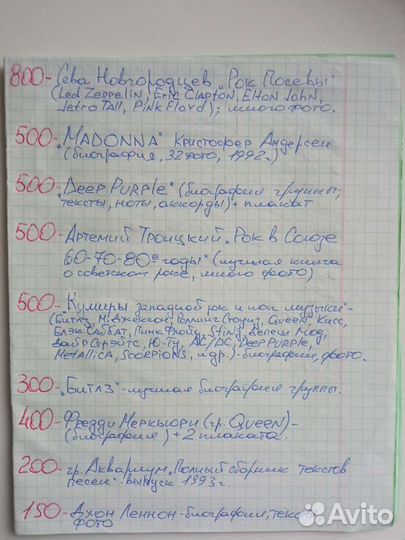 800-Сева Новгородцев „Рок Посевы"
(Led Zeppelin, Eric Clapton, Elton John,
Jetro Tall, Pink Floyd); много фото.
500-„MADONNA" Кристофер Андерсен
(биография, 32 фото, 1992г.)
500-„Deep Purple" (биография группы;
тексты, ноты, аккорды) + плакат
500-Артемий Троицкий „Рок в Союзе
60-70-80е годы" (лучшая книга
о советском роке, много фото)
500-„Кумиры западной рок и поп музыки"-
(Битлз, М.Джексон, Роллинг Стоунз, Queen, Кисс,
Блэк Саббат, Пинк Флойд, Sting, Депеш Мод,
Дайер Стрэйтс, Ю-ту, AC/DC, Deep Purple,
Metallica, Scorpions, и др.)-биографии, фото.
300-„Битлз"-лучшая биография группы.
400-Фредди Меркьюри (гр. Queen)-
(биография) + 2 плаката.
200-гр. Аквариум „Полный сборник текстов
песен"-выпуск 1993г.
150-Джон Леннон-биография, текс
фото
Avito